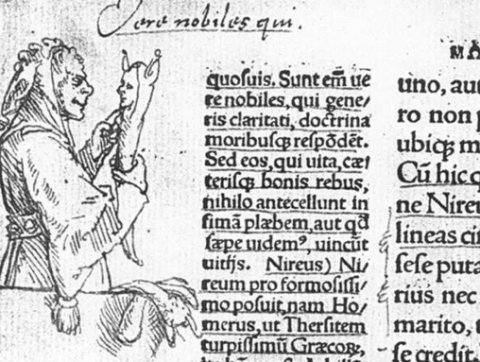 Vere nobiles qui.
quosuis. Sunt em̃ ue
re nobiles, qui gene/
ris claritati, doctrina
moribusq́; respõdẽt.
Sed eos, qui uita, cæt
terisq́; bonis rebus,
nihilo antecellunt in
fimã plæbem, aut qđ
sæpe uidemꝰ, uincũt
uitijs. Nireus) Ni/
reum pro formosissi/
mo posuit, nam Ho/
merus, ut Thersitem
turpissimũ Græcoꝝ,
MA
uno, aut
ro non p
ubiq; m
Cũ hic q
ne Nireu
lineas cir
sese puta
rius nec
marito, t
se credit.